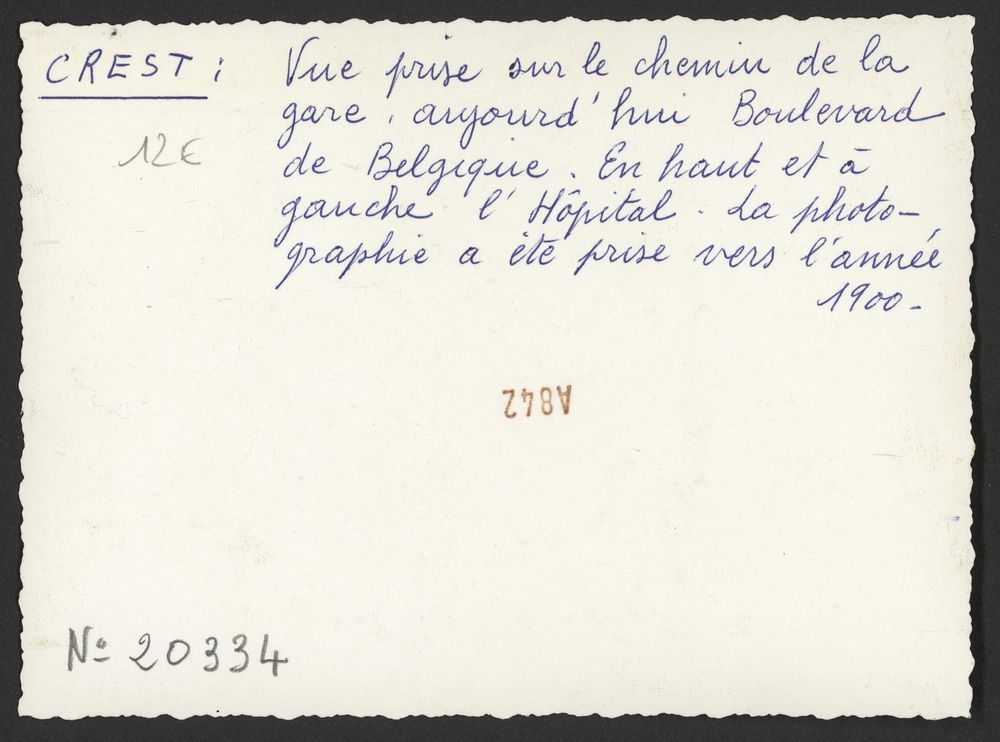 CREST : Vue prise sur le chemin de la
gare, aujourd'hui Boulevard
de Belgique. En haut et à
gauche l'Hôpital. La photo-
graphie a été prise vers l'année
1900.
12€
A842
Nº 20334